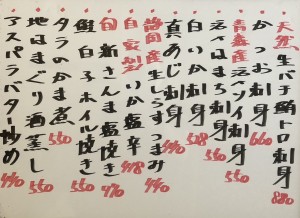 天然生バチ鮪トロ刺身 880
かつお刺身 660
青森産活〆ソイ刺身 550
活〆はまち刺身 550
真あじ刺身 528
静岡産生しらすつまみ 440
自家製いか塩辛 418
旬新さんま塩焼き 470
鮭白子ホイル焼き
タラのかま煮 550
地はまぐり酒蒸し 550
アスパラバター炒め 440